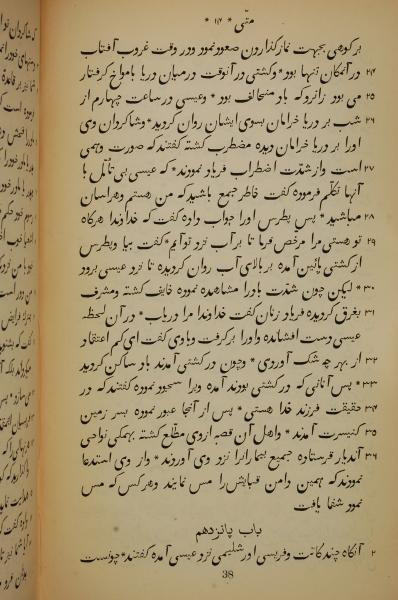 * متّی * ۱۴ *
بر کوهی بجهت نمازگذاردن صعود نمود و در وقت غروب آفتاب
۲۴ در آنمکان تنها بود * وکشتی در آنوقت درمیان دریا بامواج گرفتار
۲۵ می بود زانرو که باد مخالف بود * وعیسی در ساعت چهارم از
۲۶ شب بر دریا خرامان بسوی ایشان روان گردید * وشاکردان وی
اورا بر دریا خرامان دیده مضطرب کشته کفتند که صورت وهمی
۲۷ است واز شدّت اضطراب فریاد نمودند * که عیسی بی تأمّل با
آنها تکلّم فرموده کفت خاطر جمع باشید که من هستم وهراسان
۲۸ مباشید * پس پطرس اورا جواب داده کفت که خداوندا هرکاه
۲۹ تو هستی مرا مرخّص فرما تا بر آب نزد تو آیم * کفت بیا وپطرس
از کشتی پائین آمده بر بالای آب روان کردیده تا نزد عیسی برود
۳۰ * لیکن چون شدّت باد را مشاهده نموده خایف کشته ومشرف
۳۱ بغرق کردیده فریاد زنان کفت خداوندا مرا دریاب * در آن لحظه
عیسی دست افشانده واورا برکرفت وباوی کفت ای کم اعتقاد
۳۲ از بهر چه شک آوردی * وچون در کشتی آمدند باد ساکن کردید
۳۳ * پس آنانی که در کشتی بودند آمده ویرا سجود نموده کفتند که در
۳۴ حقیقت فرزند خدا هستی * پس از آنجا عبور نموده بسر زمین
۳۵ کنیسرت آمدند * واهل آن قصبه از وی مطّلع کشته بهمکی نواحی
۳۶ آندیار فرستاده جمیع بیمارانرا نزد وی آوردند * واز وی استدعا
نمودند که همین دامن قبایش را مس نمایند وهر کس که مس
نمود شفا یافت
باب پانزدهم
۲ آنکاه چند کاتب وفریسی اورشلیمی نزد عیسی آمده کفتند * چونست
38